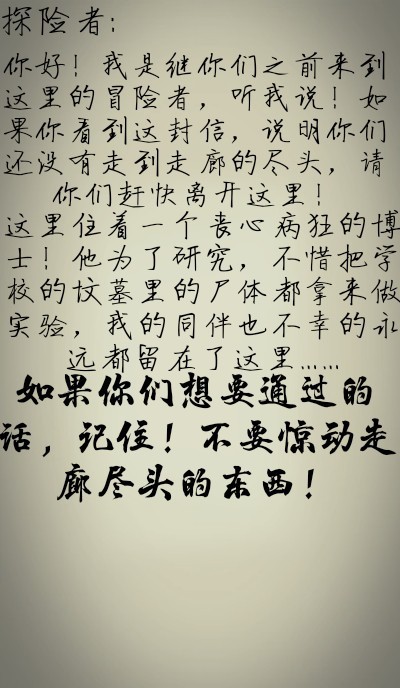 探险者:
你好！我是继你们之前来到
这里的冒险者，听我说！如
果你看到这封信，说明你们
还没有走到走廊的尽头，请
你们赶快离开这里！
这里住着一个丧心病狂的博
士！他为了研究，不惜把学
校的坟墓里的尸体都拿来做
实验，我的同伴也不幸的永
远都留在了这里……
如果你们想要通过的
话，记住！不要惊动走
廊尽头的东西！